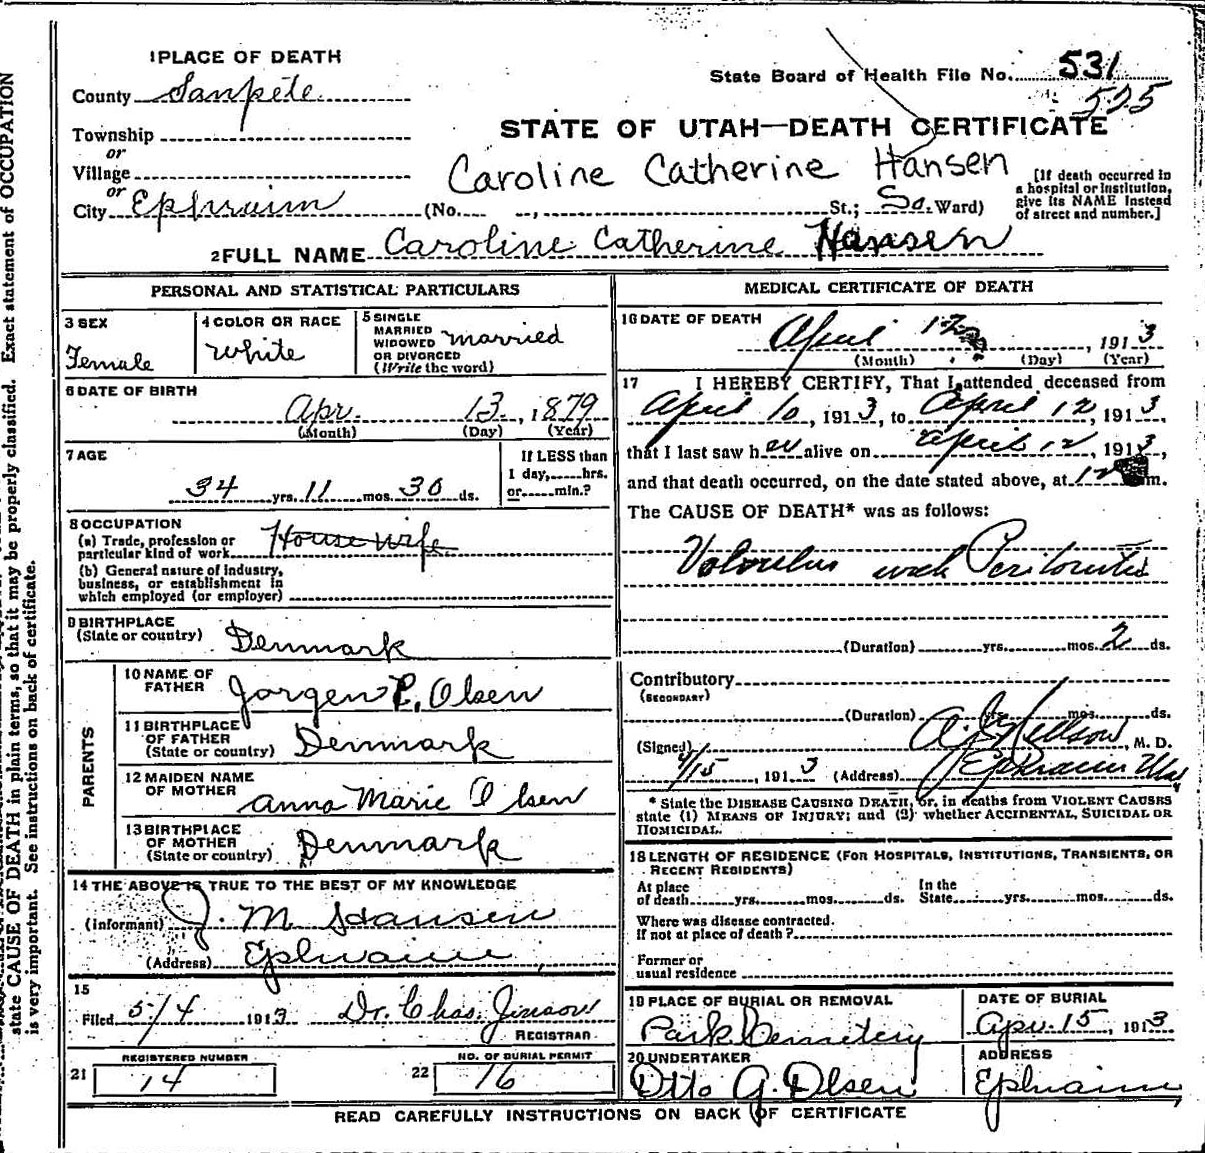 state CAUSE OF DEATH in plain terms, so that it may be properly classified. Exact statement of OCCUPATION
is very important. See instructions on back of certificate.
1 PLACE OF DEATH
State Board of Health File No. 531
525
County Sanpete
STATE OF UTAH—DEATH CERTIFICATE
Township
or
Village
or
Caroline Catherine Hansen
City Ephraim (No. , St.; So. Ward)
[If death occurred in
a hospital or institution,
give its NAME instead
of street and number.]
2 FULL NAME Caroline Catherine Hansen
PERSONAL AND STATISTICAL PARTICULARS
3 SEX
Female
4 COLOR OR RACE
White
5 SINGLE
MARRIED
WIDOWED
OR DIVORCED
(Write the word)
married
6 DATE OF BIRTH
Apr. 13, 1879
(Month) (Day) (Year)
7 AGE
34 yrs. 11 mos. 30 ds.
If LESS than
1 day, hrs.
or min.?
8 OCCUPATION
(a) Trade, profession or
particular kind of work House wife
(b) General nature of industry,
business, or establishment in
which employed (or employer)
9 BIRTHPLACE
(State or country) Denmark
PARENTS
10 NAME OF
FATHER Jorgen P. Olsen
11 BIRTHPLACE
OF FATHER
(State or country) Denmark
12 MAIDEN NAME
OF MOTHER Anna Marie Olsen
13 BIRTHPLACE
OF MOTHER
(State or country) Denmark
14 THE ABOVE IS TRUE TO THE BEST OF MY KNOWLEDGE
(Informant) J. M. Hansen
(Address) Ephraim
15
Filed 5/4 1913 Dr. Chas. Jinson
REGISTRAR
REGISTERED NUMBER
21 14
NO. OF BURIAL PERMIT
22 16
MEDICAL CERTIFICATE OF DEATH
16 DATE OF DEATH
April 12, 1913
(Month) (Day) (Year)
17 I HEREBY CERTIFY, That I attended deceased from
April 10, 1913, to April 12, 1913
that I last saw her alive on April 12, 1913,
and that death occurred, on the date stated above, at 12 m.
The CAUSE OF DEATH* was as follows:
Volvulus with Peritonitis
(Duration) yrs. mos. 2 ds.
Contributory
(SECONDARY)
(Duration) yrs. mos. ds.
(Signed) M. D.
4/15, 1913 (Address) Ephraim Utah
* State the DISEASE CAUSING DEATH, or, in deaths from VIOLENT CAUSES
state (1) MEANS OF INJURY; and (2) whether ACCIDENTAL, SUICIDAL OR
HOMICIDAL.
18 LENGTH OF RESIDENCE (FOR HOSPITALS, INSTITUTIONS, TRANSIENTS, OR
RECENT RESIDENTS)
At place
of death yrs. mos. ds.
In the
State yrs. mos. ds.
Where was disease contracted.
If not at place of death?
Former or
usual residence
19 PLACE OF BURIAL OR REMOVAL
Park Cemetery
DATE OF BURIAL
Apr. 15, 1913
20 UNDERTAKER
Otto G. Olsen
ADDRESS
Ephraim
READ CAREFULLY INSTRUCTIONS ON BACK OF CERTIFICATE